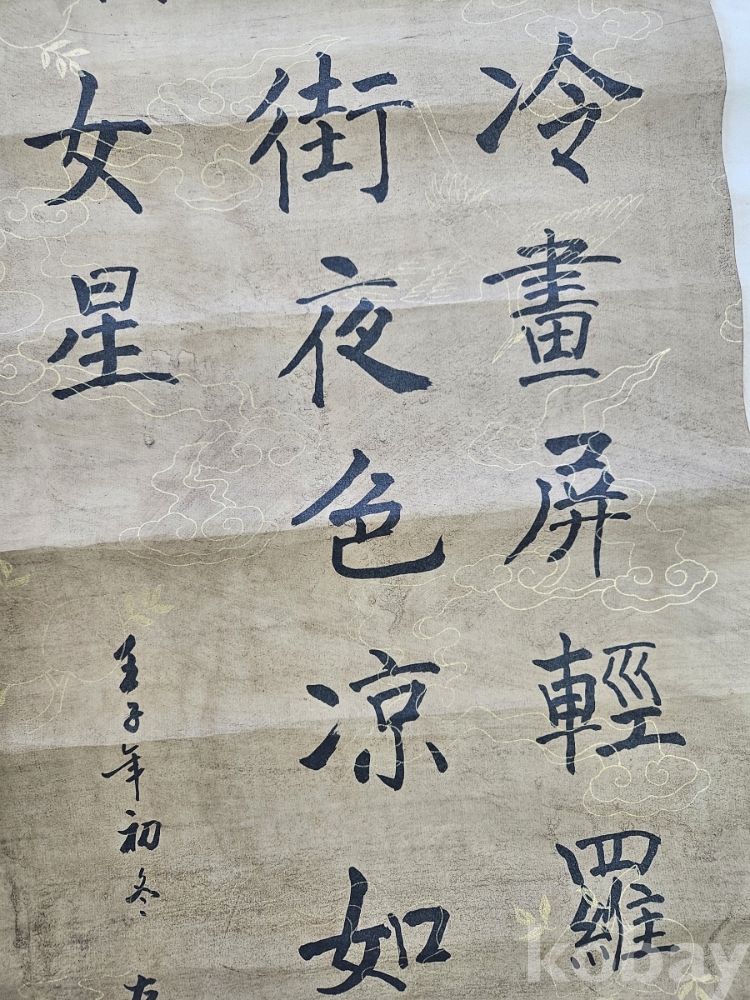 冷畫屏輕羅
街夜色凉如
女星
壬子年初冬
kobay